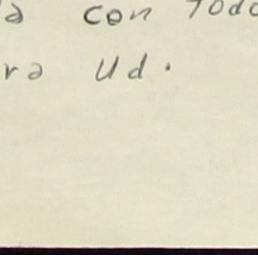 a con Todo
ra Ud.